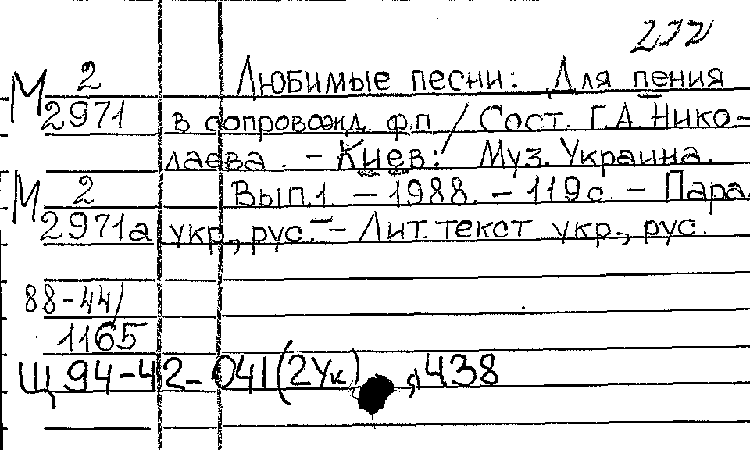 232
М 2 Любимые песни: Для пения
2971 в сопровожд. ф.п / Сост. Г.А. Нико-
лаева. - Киев: Муз. Украина.
М 2 Вып.1 - 1988. - 119 с. - Пара
2971а укр., рус. - Лит. текст укр., рус.
88-44/
1165
Щ 94-42-041(2Ук) ,438